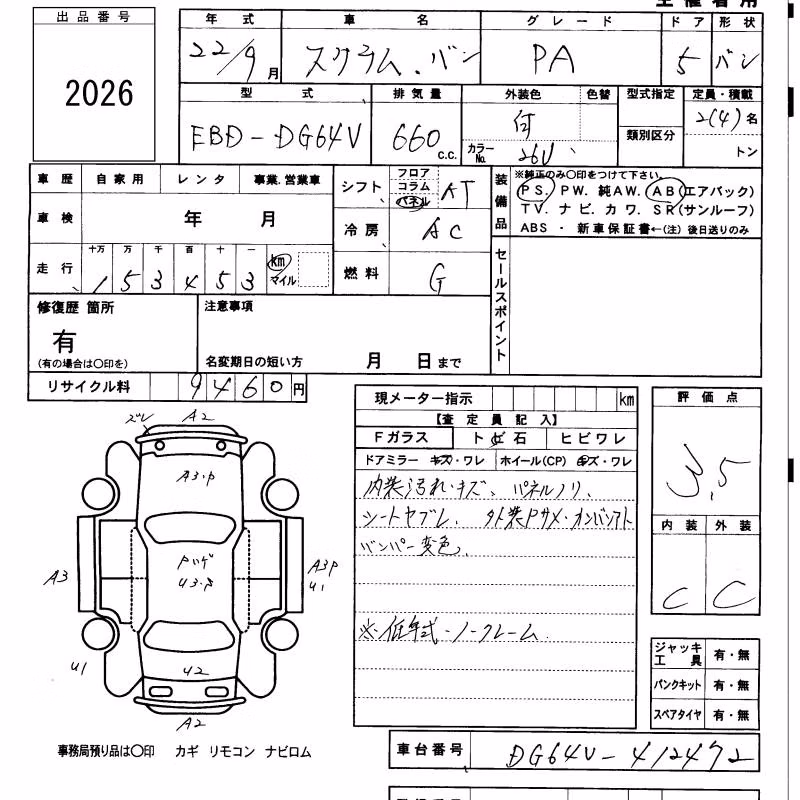 出品番号
2026
年式 車名 グレード ドア 形状
22/9月 スクラム.バン PA 5 バン
型式 排気量 外装色 色替 型式指定 定員・積載
EBD-DG64V 660 c.c. カラーNo. 26U 類別区分 2(4)名
トン
車歴 自家用 レンタ 事業.営業車
車検 年 月
十万 万 千 百 十 一
走行 1 5 3 4 5 3 km マイル
シフト フロア コラム パネル AT
冷房 AC
燃料 G
装備品
※純正のみ〇印をつけて下さい。
PS. PW. 純AW. AB(エアバック)
TV. ナビ. カワ. SR(サンルーフ)
ABS ・ 新車保証書←(注) 後日送りのみ
セールスポイント
修復歴 箇所
有
(有の場合は〇印を)
注意事項
名変期日の短い方 月 日まで
リサイクル料 9460円
現メーター指示 km
【査定員記入】
Fガラス トビ石 ヒビワレ
ドアミラー キズ・ワレ ホイール(CP) キズ・ワレ
内装汚れ・キズ、パネルノリ、
シートヤブレ、外装Pサメ・
バンパー変色、
※低年式・ノークレーム
評価点
3.5
内装 外装
C C
ズレ A2
A3・P
Pハゲ
U3・P
A3
A3P
U1
U1
U2
A2
ジャッキ工具 有・無
パンクキット 有・無
スペアタイヤ 有・無
事務局預り品は〇印 カギ リモコン ナビロム
車台番号 DG64V-412472